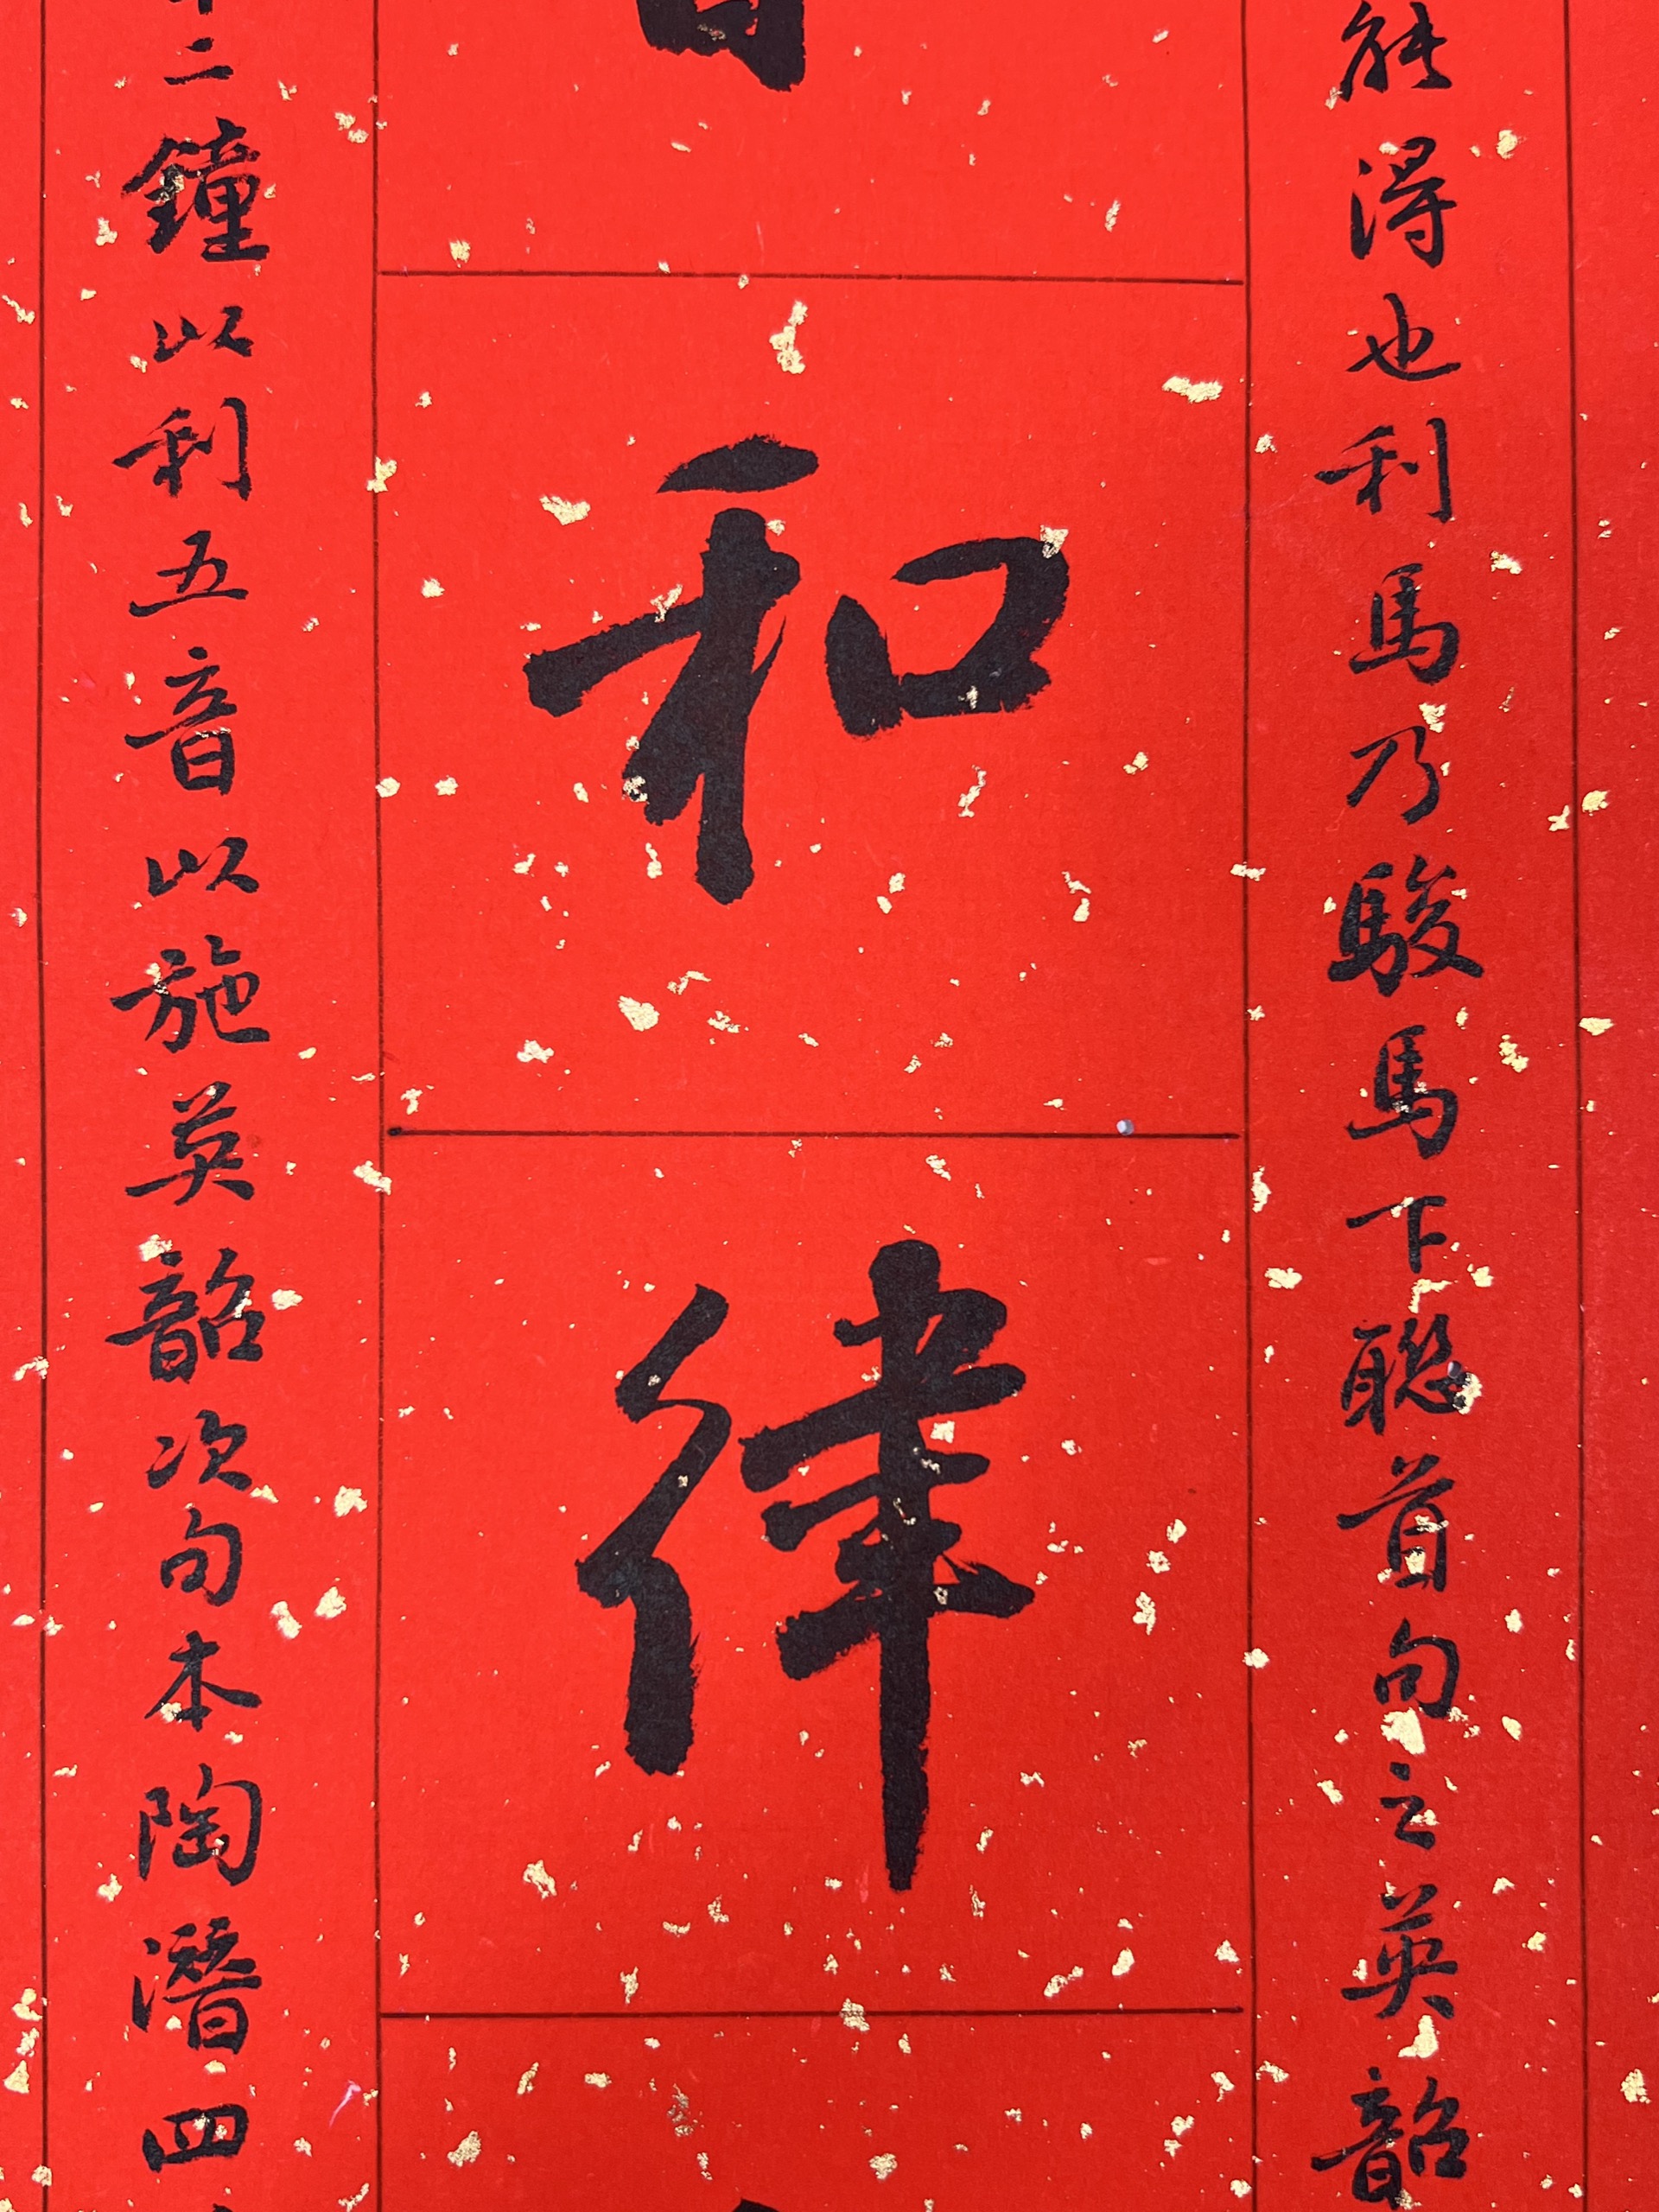 能得也利馬乃駿馬下聯首句之英韶
和律
二鐘以利五音以施英韶次句本陶潛四